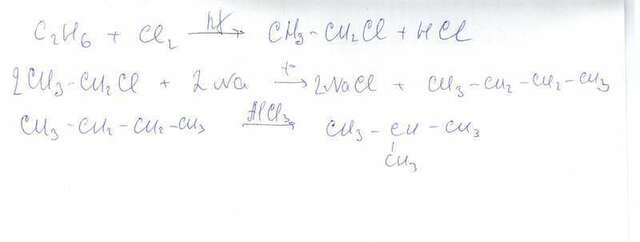 C₂H₆ + Cl₂ hγ→ CH₃-CH₂Cl + HCl
2CH₃-CH₂Cl + 2Na t→ 2NaCl + CH₃-CH₂-CH₂-CH₃
CH₃-CH₂-CH₂-CH₃ AlCl₃→ CH₃-CH-CH₃
CH₃